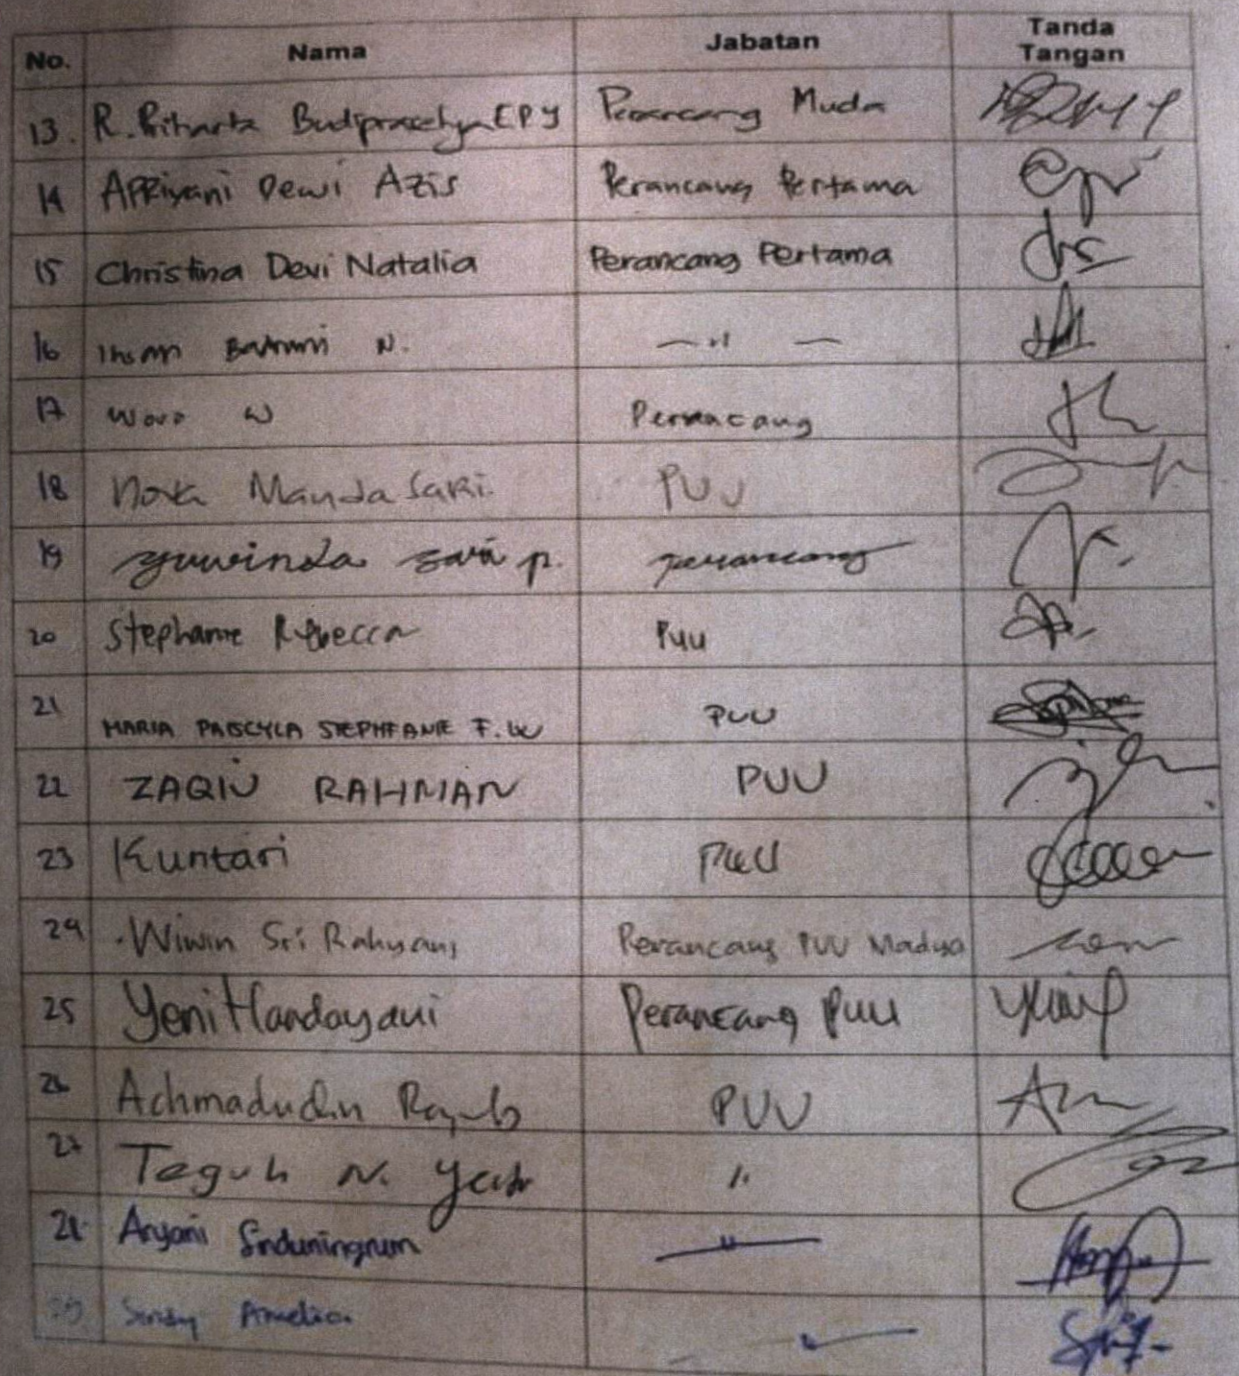 No. Nama Jabatan Tanda
Tangan
13. R. Bitharta EPY Perancang Muda
14 Apriyani Dewi Azis Perancang Pertama
15 Christina Devi Natalia Perancang Pertama
16 Ihsan N. — " —
17 Woro W Perancang
18 Nova Manda Sari PUU
19 yuwinda sari p. perancang
20 Stephanie Rebecca PUU
21 MARIA STEPHEANIE F. W PUU
22 ZAQIU RAHMAN PUU
23 Kuntari PUU
24 Wiwin Sri Rahyani Perancang PUU Madya
25 Yeni Handayani Perancang PUU
26 Achmadudin PUU
27 Teguh N. "
28 Aryani Sinduningrum — " —
29 Sindy Amelia